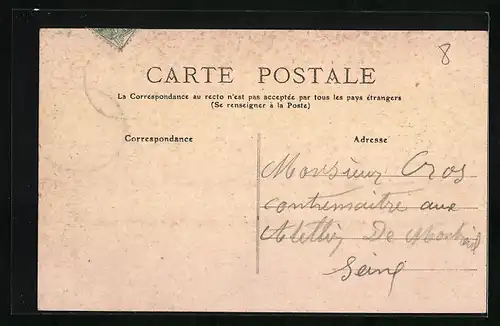 8
CARTE POSTALE
La Correspondance au recto n'est pas acceptée par tous les pays étrangers
(Se renseigner à la Poste)
Correspondance
Adresse
Monsieur Cros
contremaitre aux
De
Seine